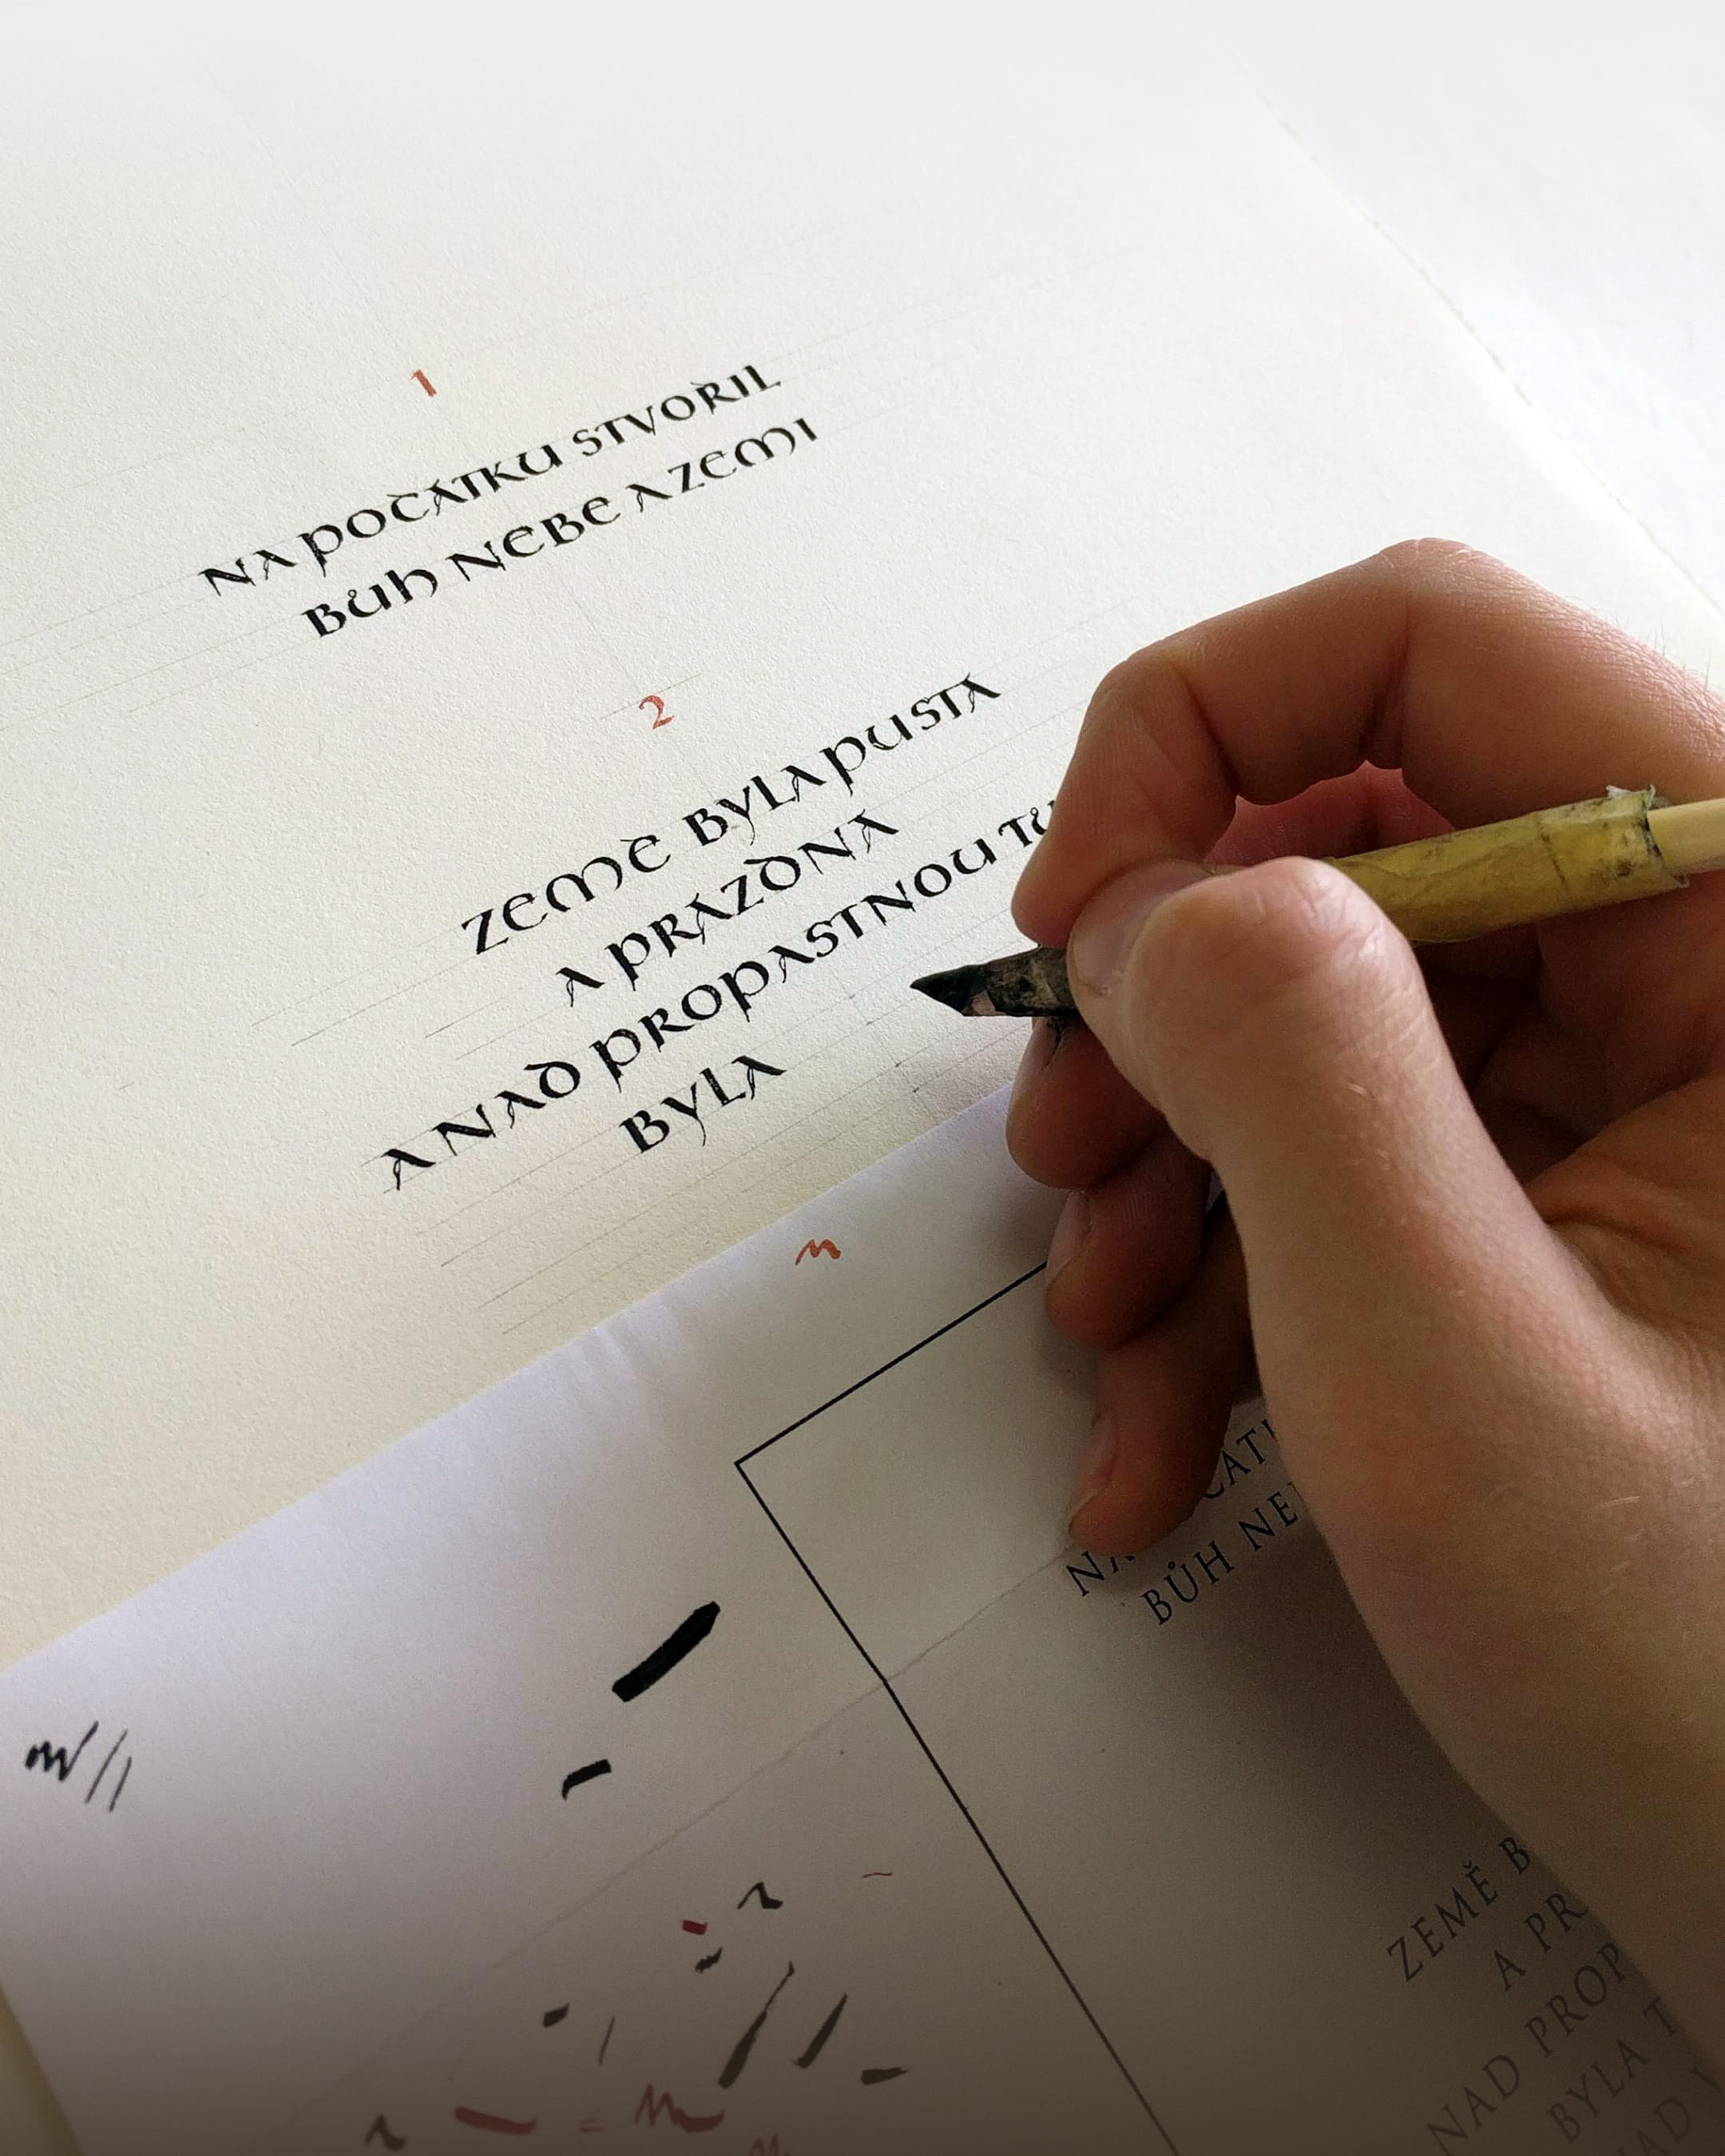 1
NA POČÁTKU STVOŘIL
BŮH NEBE A ZEMI
2
ZEMĚ BYLA PUSTA
A PRÁZDNA
A NAD PROPASTNOU
BYLA
NA
BŮH
ZEMĚ
A
NAD
BYLA